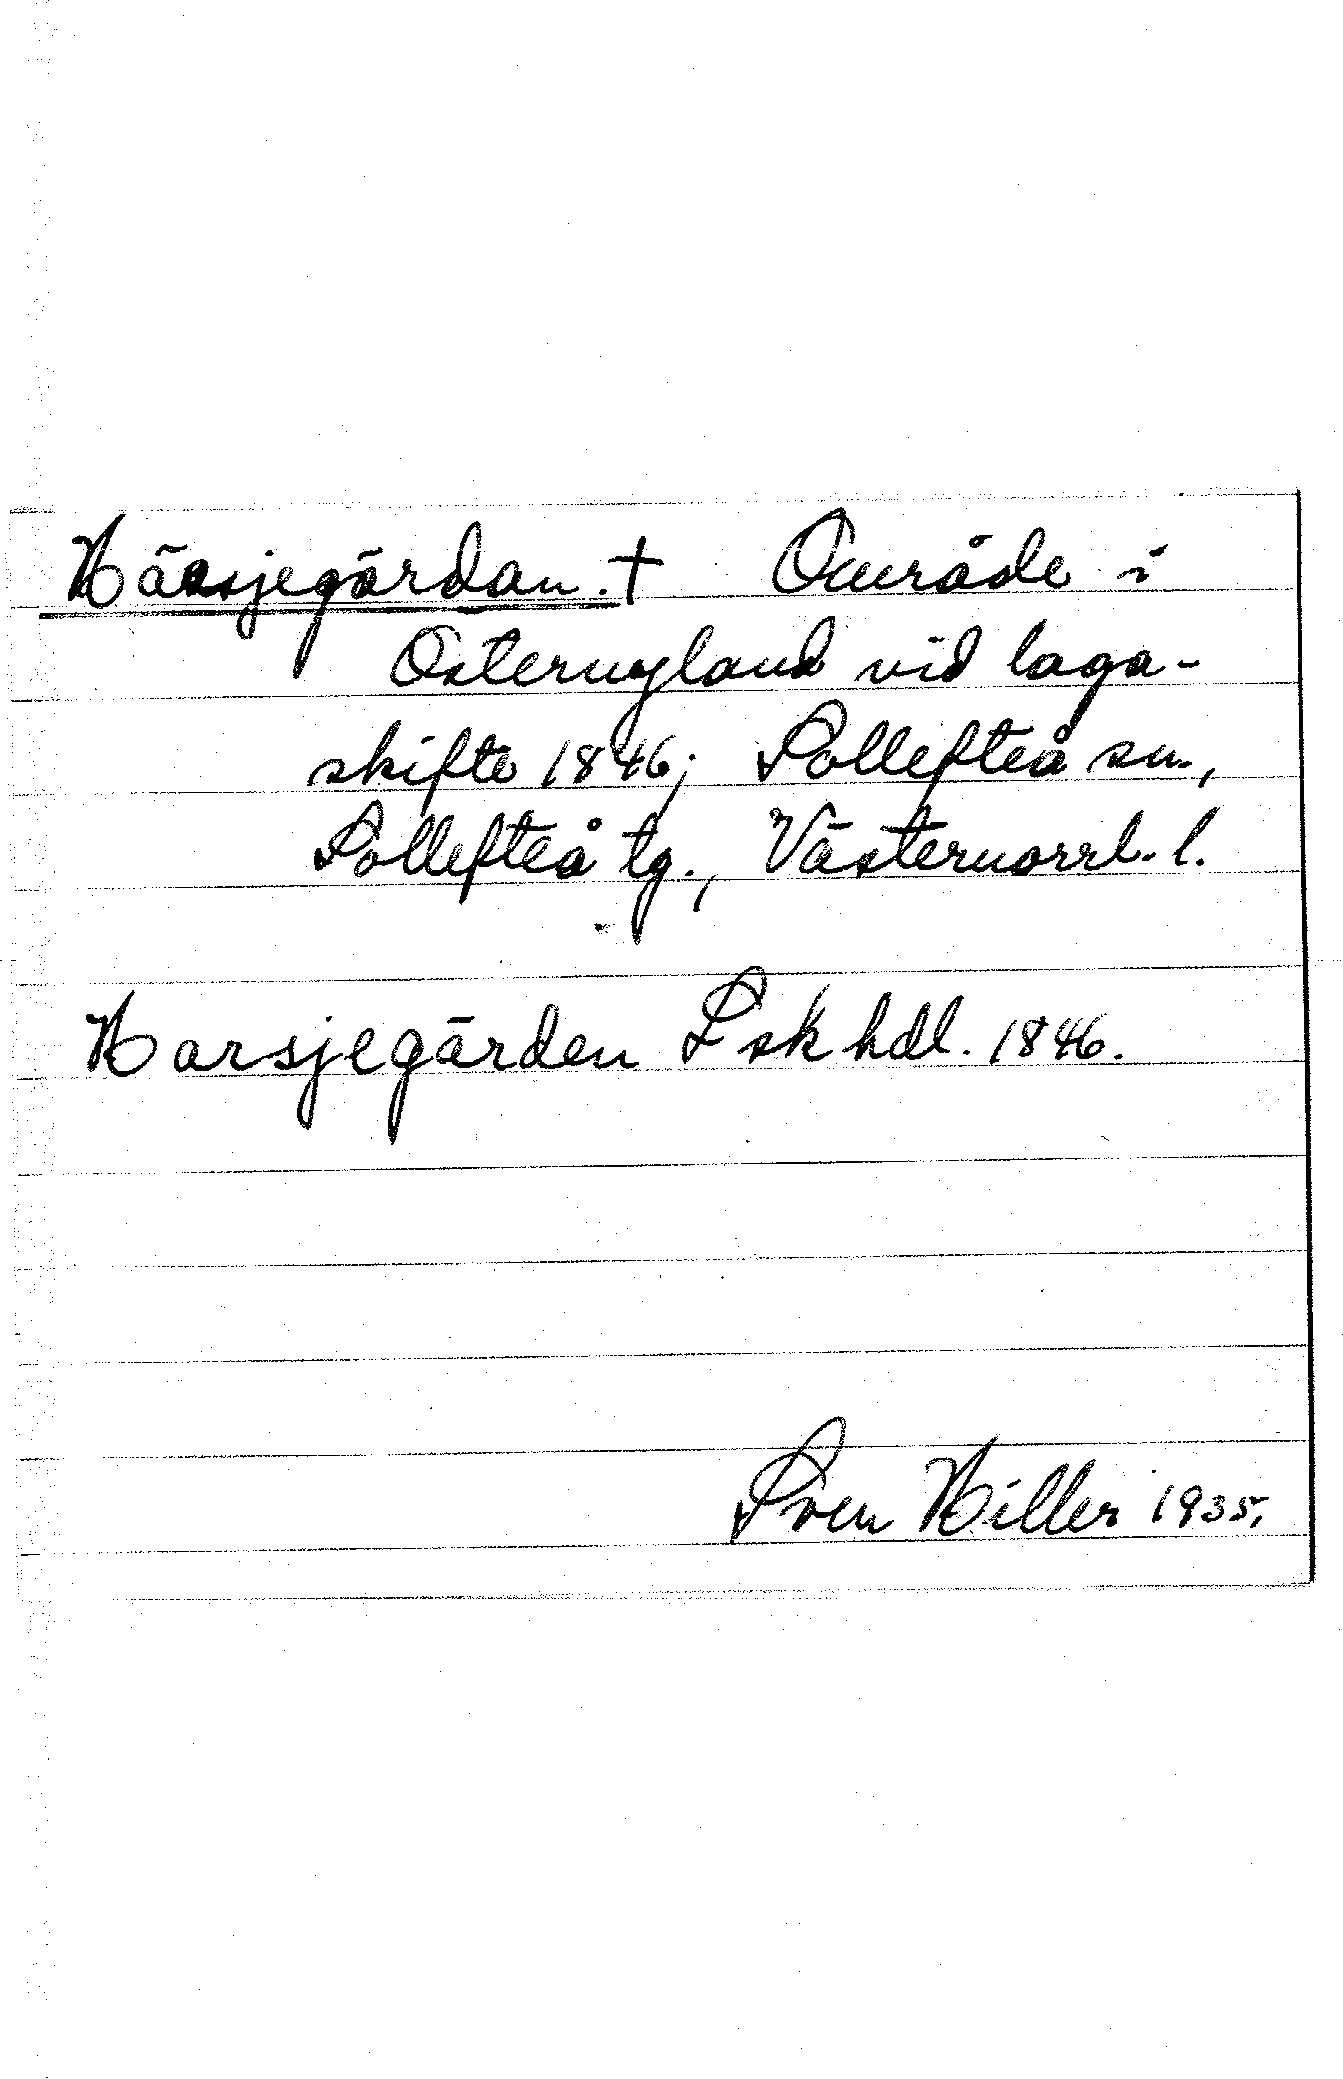 Hässjegärdan. † Område i
Östernyland vid laga-
skifte 1846; Sollefteå sn.,
Sollefteå tg., Västernorrl. l.
Harsjegärden Lskhdl. 1846.
Sven Hiller 1935.